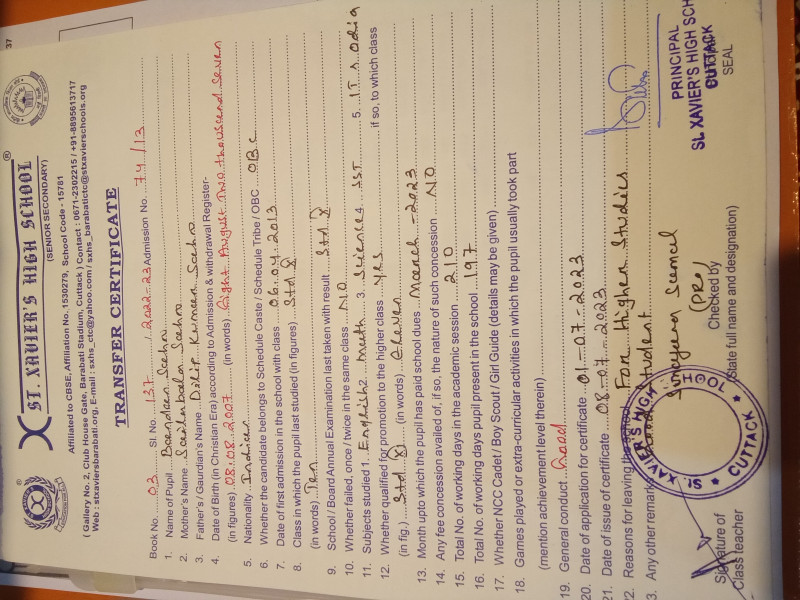 37
ST. XAVIER'S HIGH SCHOOL ®
(SENIOR SECONDARY)
Affiliated to CBSE, Affiliation No. 1530279, School Code - 15781
( Gallery No. 2, Club House Gate, Barabati Stadium, Cuttack ) Contact : 0671-2302215 / +91-8895613717
Web : stxaviersbarabati.org, E-mail : sxhs_ctc@yahoo.com / sxhs_barabatictc@stxavierschools.org
TRANSFER CERTIFICATE
Book No. 03 Sl. No. 137 / 2022-23 Admission No. 74/13
1. Name of Pupil Sahoo
2. Mother's Name Sahoo
3. Father's / Gaurdian's Name Dilip Kumar Sahoo
4. Date of Birth (in Christian Era) according to Admission & withdrawal Register-
(in figures) 08.08.2007 (in words) Eight August Two thousand Seven
5. Nationality Indian
6. Whether the candidate belongs to Schedule Caste / Schedule Tribe / OBC OBC
7. Date of first admission in the school with class 06.04.2013
8. Class in which the pupil last studied (in figures) Std X
(in words) Ten
9. School / Board Annual Examination last taken with result Std X
10. Whether failed, once / twice in the same class NO
11. Subjects studied 1. English 2. Math 3. Science 4. SST 5. IT & Odia
12. Whether qualified for promotion to the higher class Yes if so, to which class
(in fig.) Std XI (in words) Eleven
13. Month upto which the pupil has paid school dues March - 2023
14. Any fee concession availed of, if so, the nature of such concession NO
15. Total No. of working days in the academic session 210
16. Total No. of working days pupil present in the school 197
17. Whether NCC Cadet / Boy Scout / Girl Guide (details may be given)
18. Games played or extra-curricular activities in which the pupil usually took part
(mention achievement level therein)
19. General conduct Good
20. Date of application for certificate 01-07-2023
21. Date of issue of certificate 08-07-2023
22. Reasons for leaving the school For Higher Studies
3. Any other remarks Good Student
Signature of
Class teacher
ST. XAVIER'S HIGH SCHOOL
CUTTACK
Samal
(PRO)
Checked by
(State full name and designation)
PRINCIPAL
St. XAVIER'S HIGH SCH
CUTTACK
SEAL